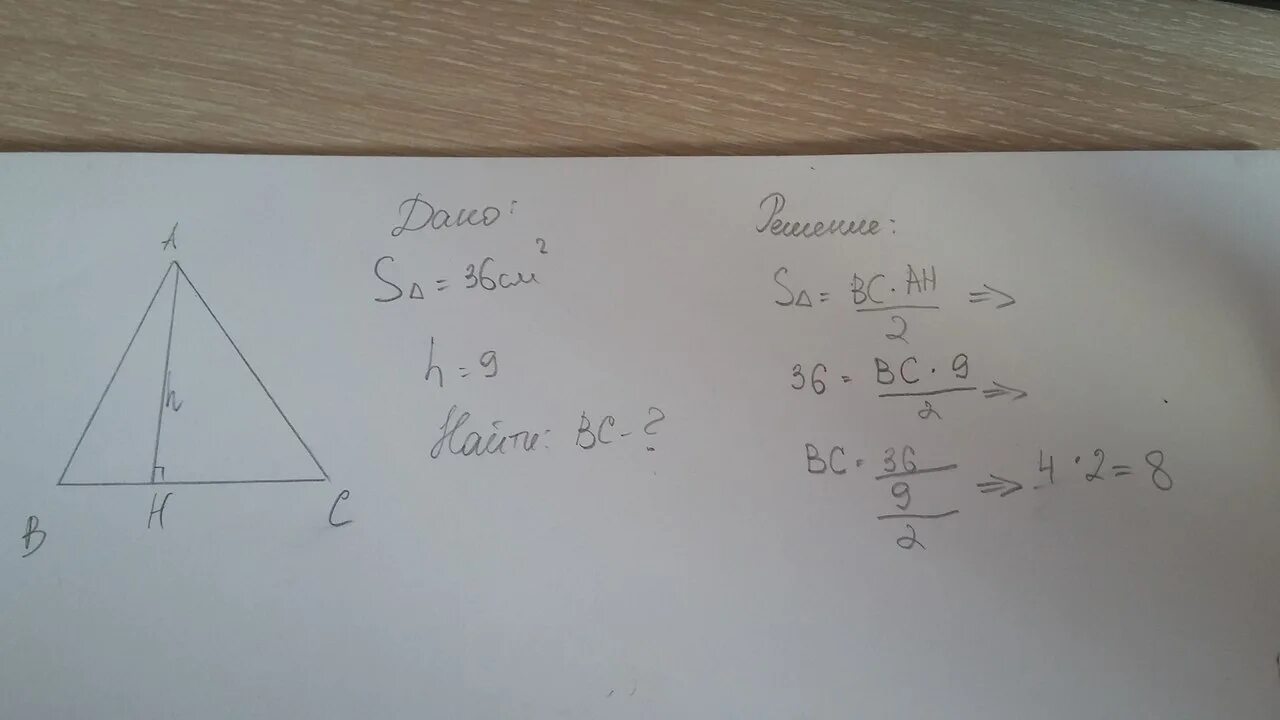 A
h
B
H
C
Дано:
S△ = 36 см²
h = 9
Найти: BC - ?
Решение:
S△ = BC · AH / 2 =>
36 = BC · 9 / 2 =>
BC = 36 / 9 / 2 => 4 · 2 = 8